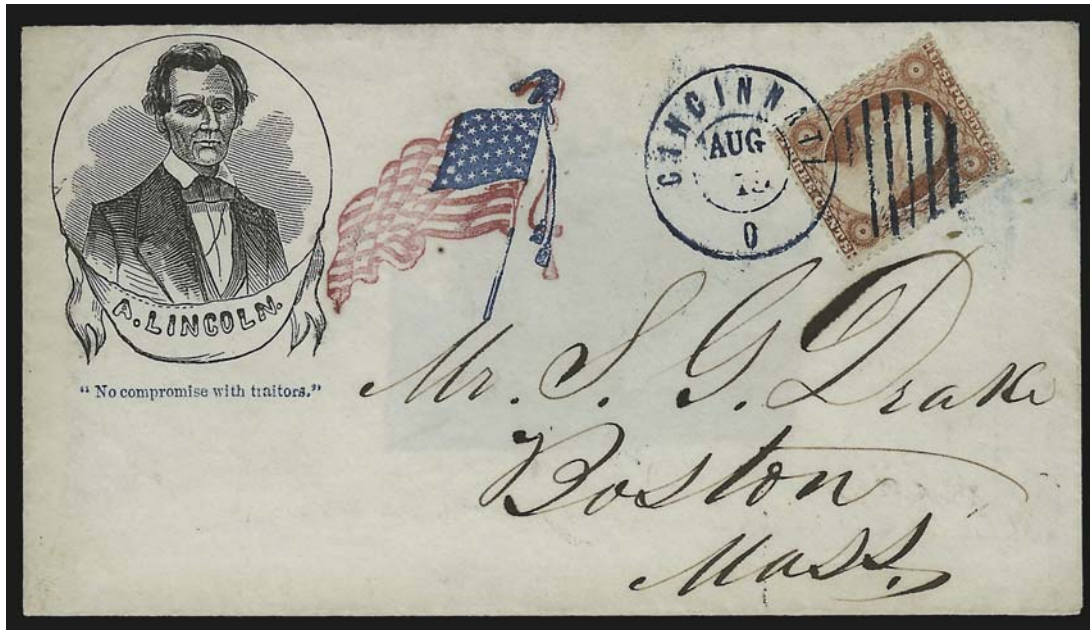 A. LINCOLN.
“ No compromise with traitors.”
CINCINNATI
AUG
O
U.S. POSTAGE
Mr. S. G. Drake
Boston
Mass.